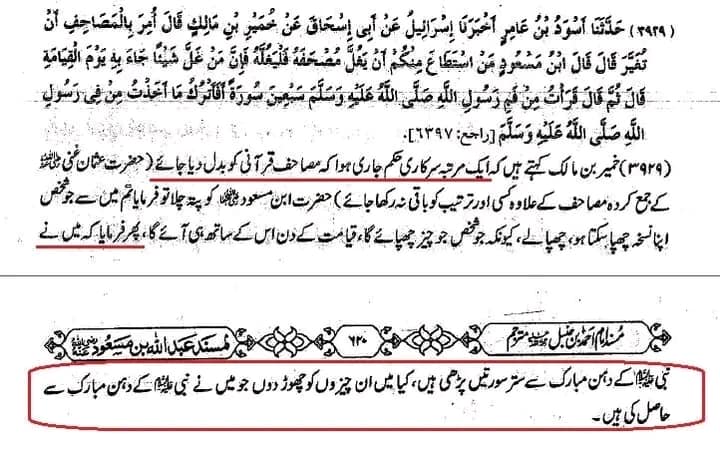 (۳۹۲۹) حَدَّثَنَا أَسْوَدُ بْنُ عَامِرٍ أَخْبَرَنَا إِسْرَائِيلُ عَنْ أَبِي إِسْحَاقَ عَنْ خُمَيْرِ بْنِ مَالِكٍ قَالَ أُمِرَ بِالْمَصَاحِفِ أَنْ
تُغَيَّرَ قَالَ قَالَ ابْنُ مَسْعُودٍ مَنِ اسْتَطَاعَ مِنْكُمْ أَنْ يَغُلَّ مُصْحَفَهُ فَلْيَغُلَّهُ فَإِنَّ مَنْ غَلَّ شَيْئًا جَاءَ بِهِ يَوْمَ الْقِيَامَةِ
قَالَ ثُمَّ قَالَ قَرَأْتُ مِنْ فَمِ رَسُولِ اللَّهِ صَلَّى اللَّهُ عَلَيْهِ وَسَلَّمَ سَبْعِينَ سُورَةً أَفَأَتْرُكُ مَا أَخَذْتُ مِنْ فِي رَسُولِ
اللَّهِ صَلَّى اللَّهُ عَلَيْهِ وَسَلَّمَ [راجع: ٦٣٩٧].
(۳۹۲۹) خمیر بن مالک کہتے ہیں کہ ایک مرتبہ سرکاری حکم جاری ہوا کہ مصاحف قرآنی کو بدل دیا جائے (حضرت عثمان غنی ؓ
کے جمع کردہ مصاحف کے علاوہ کسی اور ترتیب کو باقی نہ رکھا جائے) حضرت ابن مسعود ؓ کو پتہ چلا تو فرمایا تم میں سے جو شخص
اپنا نسخہ چھپا سکتا ہو، چھپا لے، کیونکہ جو شخص جو چیز چھپائے گا، قیامت کے دن اس کے ساتھ ہی آئے گا، پھر فرمایا کہ میں نے
مسند امام احمد بن حنبل مترجم ۶۲۰ مسند عبد اللہ بن مسعود ؓ
نبی ﷺ کے دہن مبارک سے ستر سورتیں پڑھی ہیں، کیا میں ان چیزوں کو چھوڑ دوں جو میں نے نبی ﷺ کے دہن مبارک سے
حاصل کی ہیں۔